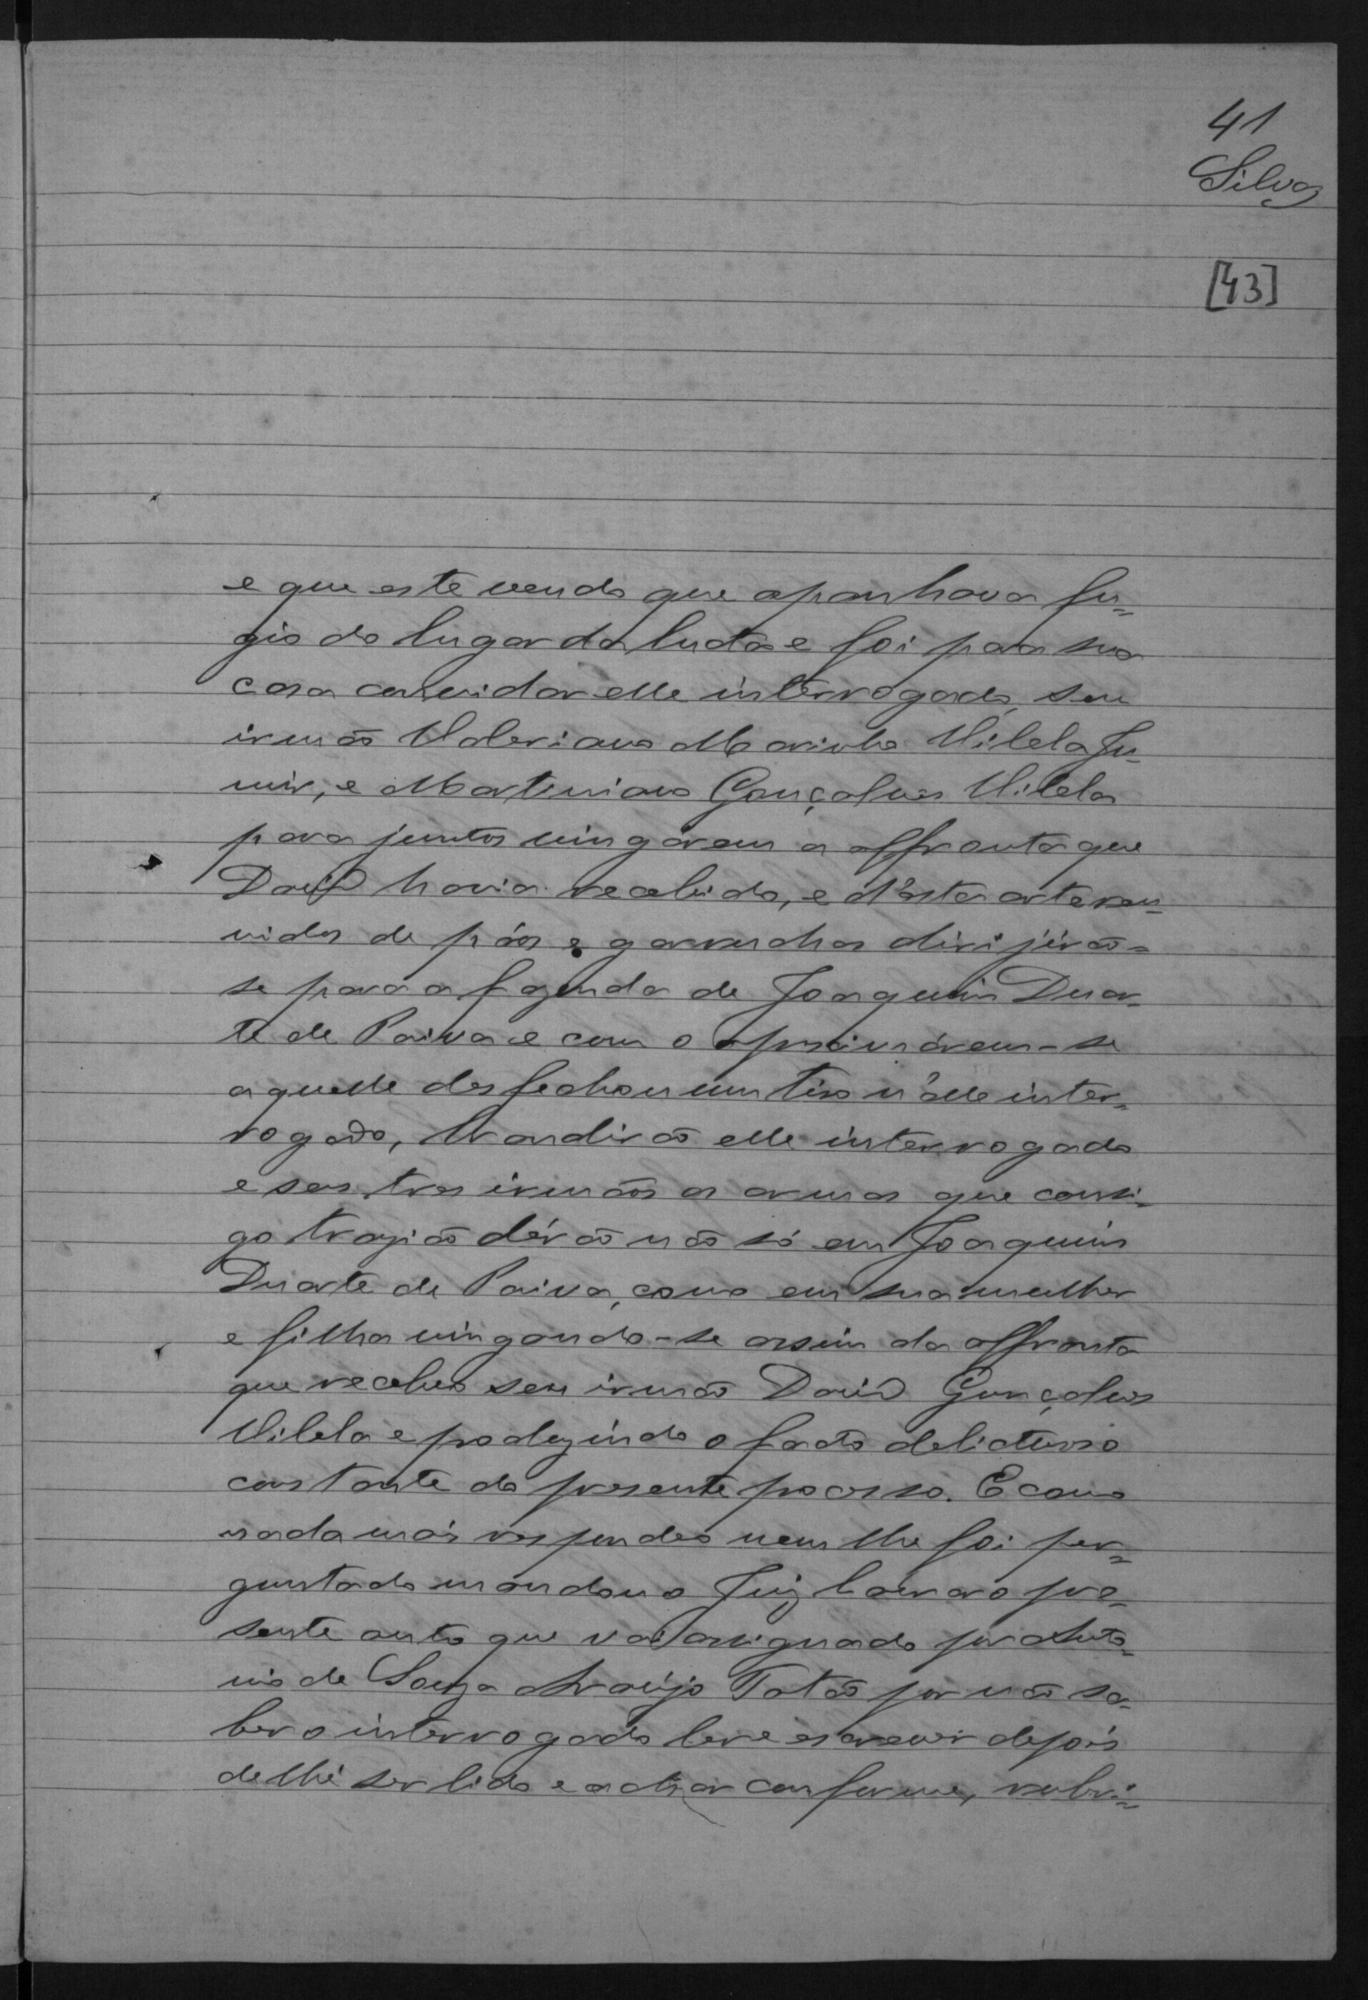 41
Silva
[43]
e que este vendo que apanhava fu=
gio do lugar da lucta e foi para sua
casa convidar elle interrogado, seu
irmão Valeriano Marinho Vilela Ju=
nior, e Marteniano Gonçalves Vilela
para juntos vingárem a affronta que
David havia recebido, e d'ésta arte mu=
nidos de páos e garruchas dirijirão=
se para a fazenda de Joaquim Duar=
te de Paiva e com o aproximárem-se
aquelle desfechou um tiro n'elle inter=
rogado, brandirão elle interrogado
e seos tres irmãos as armas que consi=
go trazião dérão não só em Joaquim
Duarte de Paiva, como em sua mulher
e filha vingando-se assim da affronta
que recebeo seu irmão David Gonçalves
Vilela e produzindo o facto delictuoso
constante do presente processo. E como
nada mais respondeo nem lhe foi per=
guntado mandou o Juiz lavrar o pre=
sente auto que vai assignado por Anto=
nio de Souza Araújo Tatão por não sa=
ber o interrogado ler e escrever depois
de lhe ser lido e achar conforme, rubri=